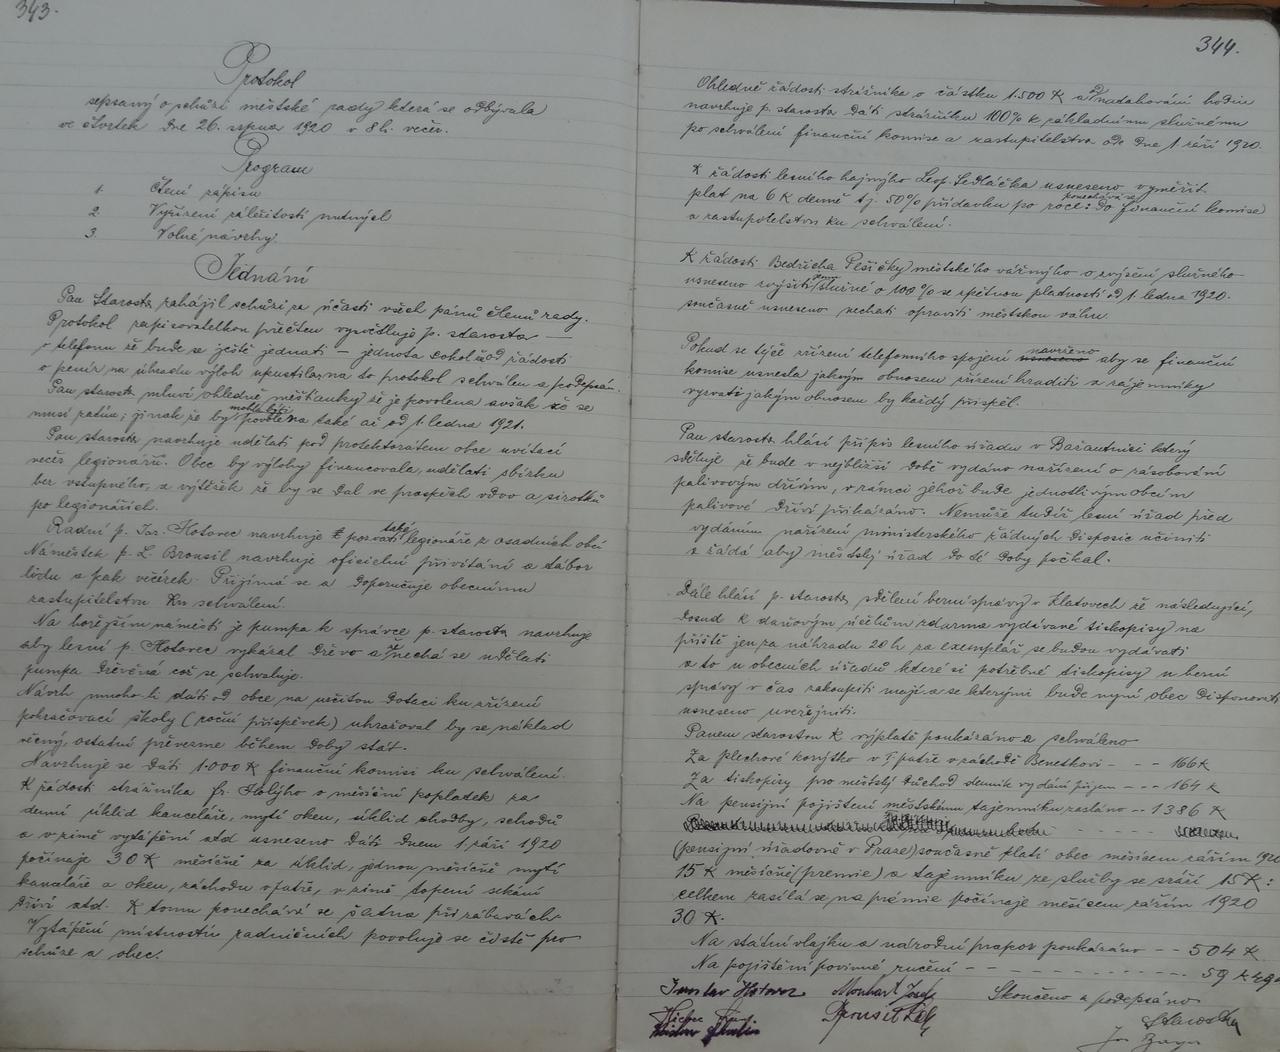 343.
Protokol
sepsaný o schůzi městské rady která se odbývala
ve čtvrtek dne 26. srpna 1920 v 8 h. večer.
Program
1. Čtení zápisu
2 Vyřízení záležitostí nutných
3. Volné návrhy.
Jednání
Pan Starosta zahájil schůzi za účasti všech pánů členů rady.
Protokol zapisovatelkou přečten vysvětluje p. starosta —
o telefonu že bude se ještě jednati — jednota sokol. od žádosti
o peníz na úhradu výloh upustila, na to protokol schválen a podepsán.
Pan starosta mluví ohledně měšťanky že je povolena avšak že se
musí žádati; jinak že by mohla býti povolena také až od 1. ledna 1921.
Pan starosta navrhuje udělati pod protektorátem obce uvítací
večer legionářů. Obec by výlohy financovala, udělati sbírku
bez vstupného, a výtěžek že by se dal ve prospěch vdov a sirotků
po legionářích.
Radní p. Jar. Hotovec navrhuje pozvati také legionáře z osadních obcí
Náměstek p. L. Brousil navrhuje oficielní přivítání a tábor
lidu a pak večírek. Přijímá se a doporučuje obecnímu
zastupitelstvu ku schválení.
Na hořejším náměstí je pumpa k správce p. starosta navrhuje
aby lesní p. Hotovec vykázal dřevo a nechá se udělati
pumpa dřevěná což se schvaluje.
Návrh mnoho-li dáti od obce na určitou dotaci ku zřízení
pokračovací školy (roční příspěvek) uhražoval by se náklad
věcný, ostatní převezme během doby stát.
Navrhuje se dáti 1.000 K finanční komisi ku schválení.
K žádosti strážníka Fr. Holýho o měsíční poplatek za
denní úklid kanceláře, mytí oken, úklid chodby, schodů
a v zimě vytápění atd usneseno dáti dnem 1 září 1920
počínaje 30 K měsíčně za úklid, jednou měsíčně mytí
kanceláře a oken, záchodu v patře, v zimě topení sekání
dříví atd. K tomu ponechává se šatna při zábavách
Vytápění místností radničních povoluje se čistě pro
schůze a obec.
344.
Ohledně žádosti strážníka o částku 1.500 K a nadahování hodin
navrhuje p. starosta dáti strážníku 100% k základnímu služnému
po schválení finanční komise a zastupitelstva ode dne 1 září 1920.
K žádosti lesního hajného Leop. Sedláčka usneseno vyměřit
plat na 6 K denně t.j. 50% přídavku po roce: ponechává se do finanční komise
a zastupitelstvu ku schválení.
K žádosti Bedřicha Pešičky městského vážného o zvýšení služného
usneseno zvýšiti jemu služné o 100% se zpětnou platností od 1. ledna 1920.
současně usneseno nechati opraviti městskou váhu.
Pokud se týče zřízení telefonního spojení navrženo aby se finanční
komise usnesla jakým obnosem zřízení hraditi a zájemníky
vyzvati jakým obnosem by každý přispěl.
Pan starosta hlásí přípis lesního úřadu v Bažantnici který
sděluje že bude v nejbližší době vydáno nařízení o zásobování
palivovým dřívím, v rámci jehož bude jednotlivým obcím
palivové dříví přikázáno. Nemůže tudíž lesní úřad před
vydáním nařízení ministerského žádných disposic učiniti
a žádá aby městský úřad do té doby počkal.
Dále hlásí p. starosta sdělení berní správy v Klatovech že následující,
dosud k daňovým účelům zdarma vydávané tiskopisy na
příště jen za náhradu 20 h za exemplář se budou vydávati
a to u obecních úřadů které si potřebné tiskopisy u berní
správy v čas zakoupiti mají a se kterými bude nyní obec disponovati
usneseno uveřejniti.
Panem starostou k výplatě poukázáno a schváleno
Za plechové korýtko v I patře v záchodě Benetkovi - - - 166 K
Za tiskopisy pro městský důchod denník vydání příjem - - - 164 K
Na pensijní pojištění městskému tajemníku zasláno - - 1386 K
(pensijní úřadovně v Praze) současně platí obec měsícem zářím 1920
15 K měsíčně (premie) a tajemníku ze služby se sráží 15 K:
celkem zasílá se na prémie počínaje měsícem zářím 1920
30 K.
Na státní vlajku a národní prapor poukázáno - - 504 K
Na pojištění povinné ručení - - - - - - 59 K 49
Skončeno a podepsáno
Jaroslav Hotovec
Brousil
Starosta